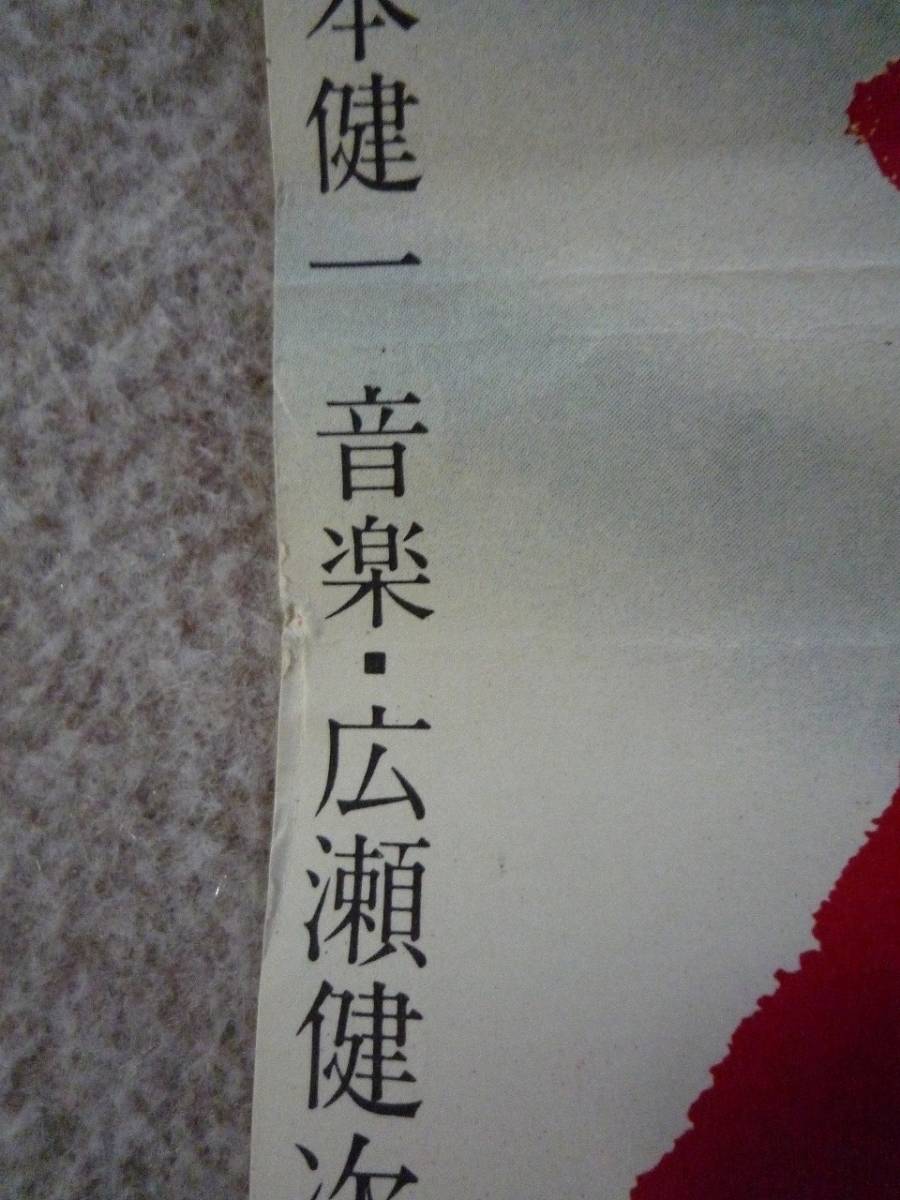 本健一 音楽・広瀬健次